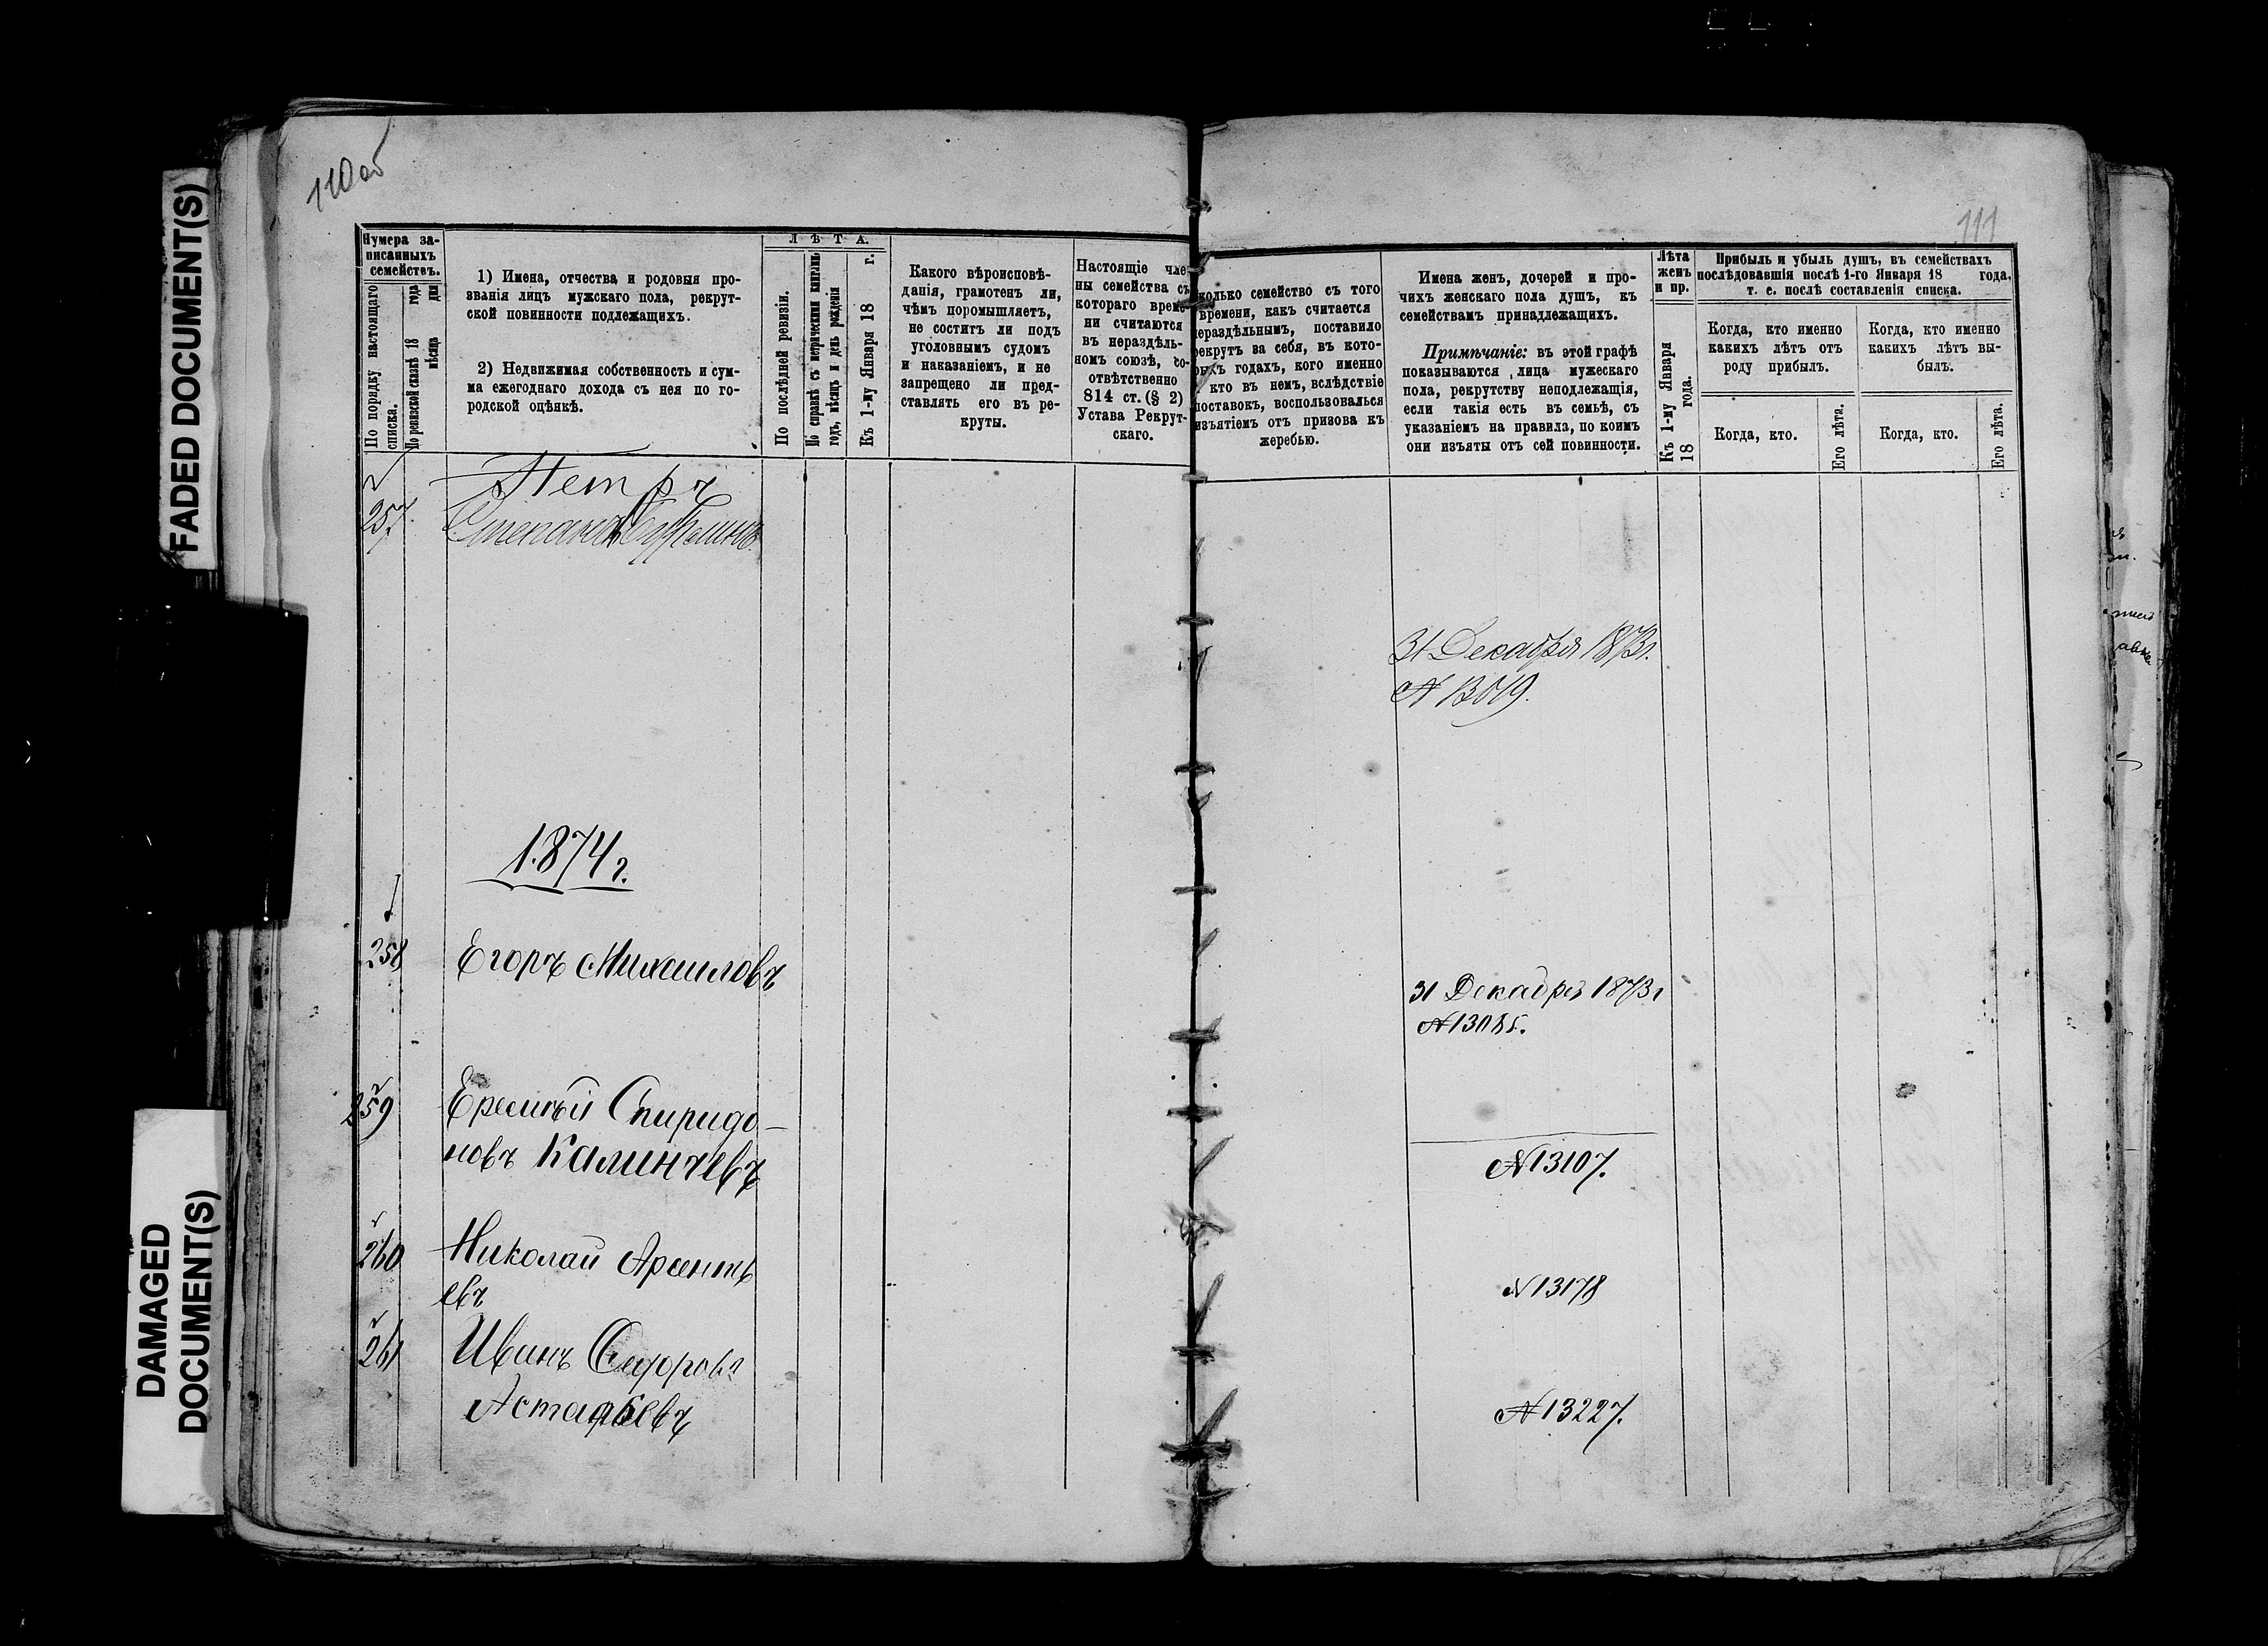 110 об
111
FADED DOCUMENT(S)
DAMAGED
DOCUMENT(S)
Нумера за-
писанныхъ
семействъ.
По порядку настоящаго
списка.
По ревизской сказкѣ 18 года
мѣсяца дня
1) Имена, отчества и родовыя про-
званія лицъ мужскаго пола, рекрут-
ской повинности подлежащихъ.
2) Недвижимая собственность и сум-
ма ежегоднаго дохода съ нея по го-
родской оцѣнкѣ.
ЛѢТА.
По послѣдней ревизіи.
По справкѣ съ метрическими книгами
годъ, мѣсяцъ и день рожденія
Къ 1-му Января 18 г.
Какого вѣроисповѣ-
данія, грамотенъ ли,
чѣмъ поромышляетъ,
не соститъ ли подъ
уголовнымъ судомъ
и наказаніемъ, и не
запрещено ли пред-
ставлять его въ ре-
круты.
Настоящіе чле
ны семейства съ
котораго време
ни считаются
въ нераздѣль-
номъ союзѣ, со-
отвѣтственно
814 ст. (§ 2)
Устава Рекрут-
скаго.
колько семейство съ того
времени, какъ считается
нераздѣльнымъ, поставило
рекрутъ за себя, въ кото-
рыхъ годахъ, кого именно
кто въ немъ, вслѣдствіе
поставокъ, воспользовалься
изъятіемъ отъ призова къ
жеребью.
Имена женъ, дочерей и про-
чихъ женскаго пола душъ, къ
семействамъ принадлежащихъ.
Примѣчаніе: въ этой графѣ
показываются лица мужескаго
пола, рекрутству неподлежащія,
если такія есть въ семьѣ, съ
указаніемъ на правила, по коимъ
они изъяты отъ сей повинности.
Лѣта
женъ
и пр.
Къ 1-му Января
18 года.
Прибыль и убыль душъ, въ семействахъ
послѣдовавшія послѣ 1-го Января 18 года,
т. е. послѣ составленія списка.
Когда, кто именно
какихъ лѣтъ отъ
роду прибылъ.
Когда, кто именно
какихъ лѣтъ вы-
былъ.
Когда, кто.
Его лѣта.
Когда, кто.
Его лѣта.
257.
Петръ
Степановъ
31 Декабря 1873г.
№
1874 г.
258
Егоръ Михаиловъ
31 Декабря 1873 г
№
259
Еремѣй Спиридо-
новъ Калинчевъ
№ 13107.
260
Николай Арсенть
евъ
№ 13178
261
Иванъ Сидоровъ
Астафьевъ
№ 13227.